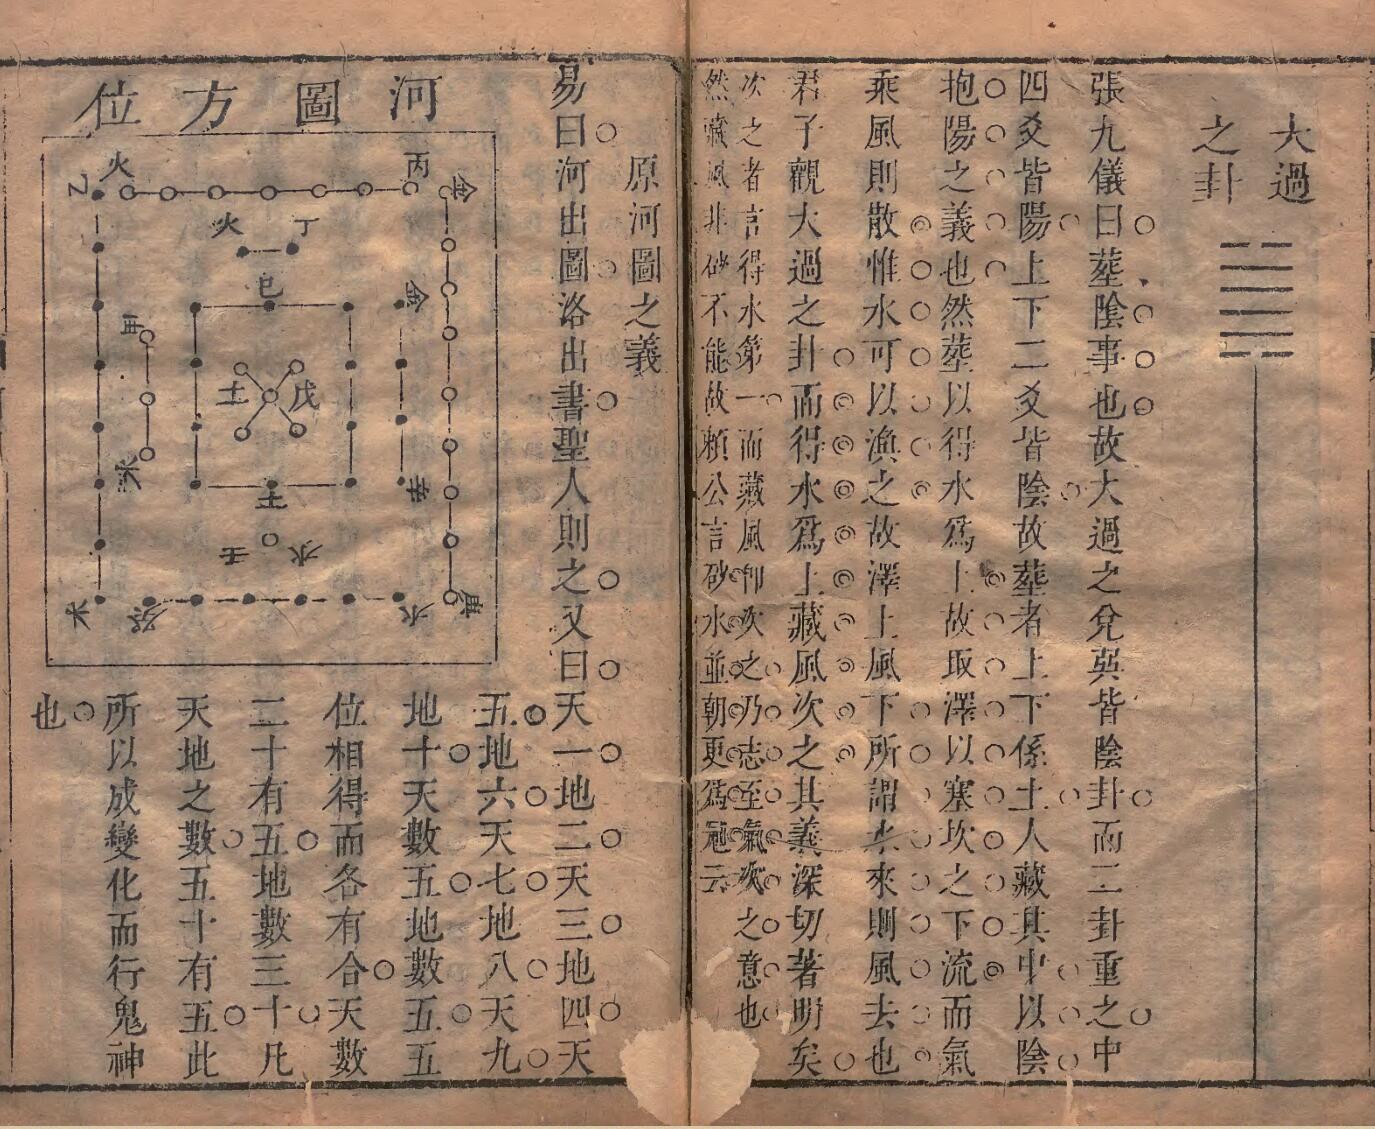 大過
之卦
張九儀曰塟陰事也故大過之兌巽皆陰卦而二卦重之中
四爻皆陽上下二爻皆陰故塟者上下係土人藏其中以陰
抱陽之義也然塟以得水爲上故取澤以塞坎之下流而氣
乘風則散惟水可以漁之故澤上風下所謂水來則風去也
君子觀大過之卦而得水爲上藏風次之其義深切著明矣
次之者言得水第一而藏風卽次之乃志至氣次之意也
然藏風非砂不能故賴公言砂水並朝更爲冠云
原河圖之義
易曰河出圖洛出書聖人則之又曰天一地二天三地四天
五地六天七地八天九
地十天數五地數五五
位相得而各有合天數
二十有五地數三十凡
天地之數五十有五此
所以成變化而行鬼神
也
河圖方位
火 丙 金
乙
火 丁
巳 金
甲
土 戊
木 辛
王
壬 水
木 癸 水 庚